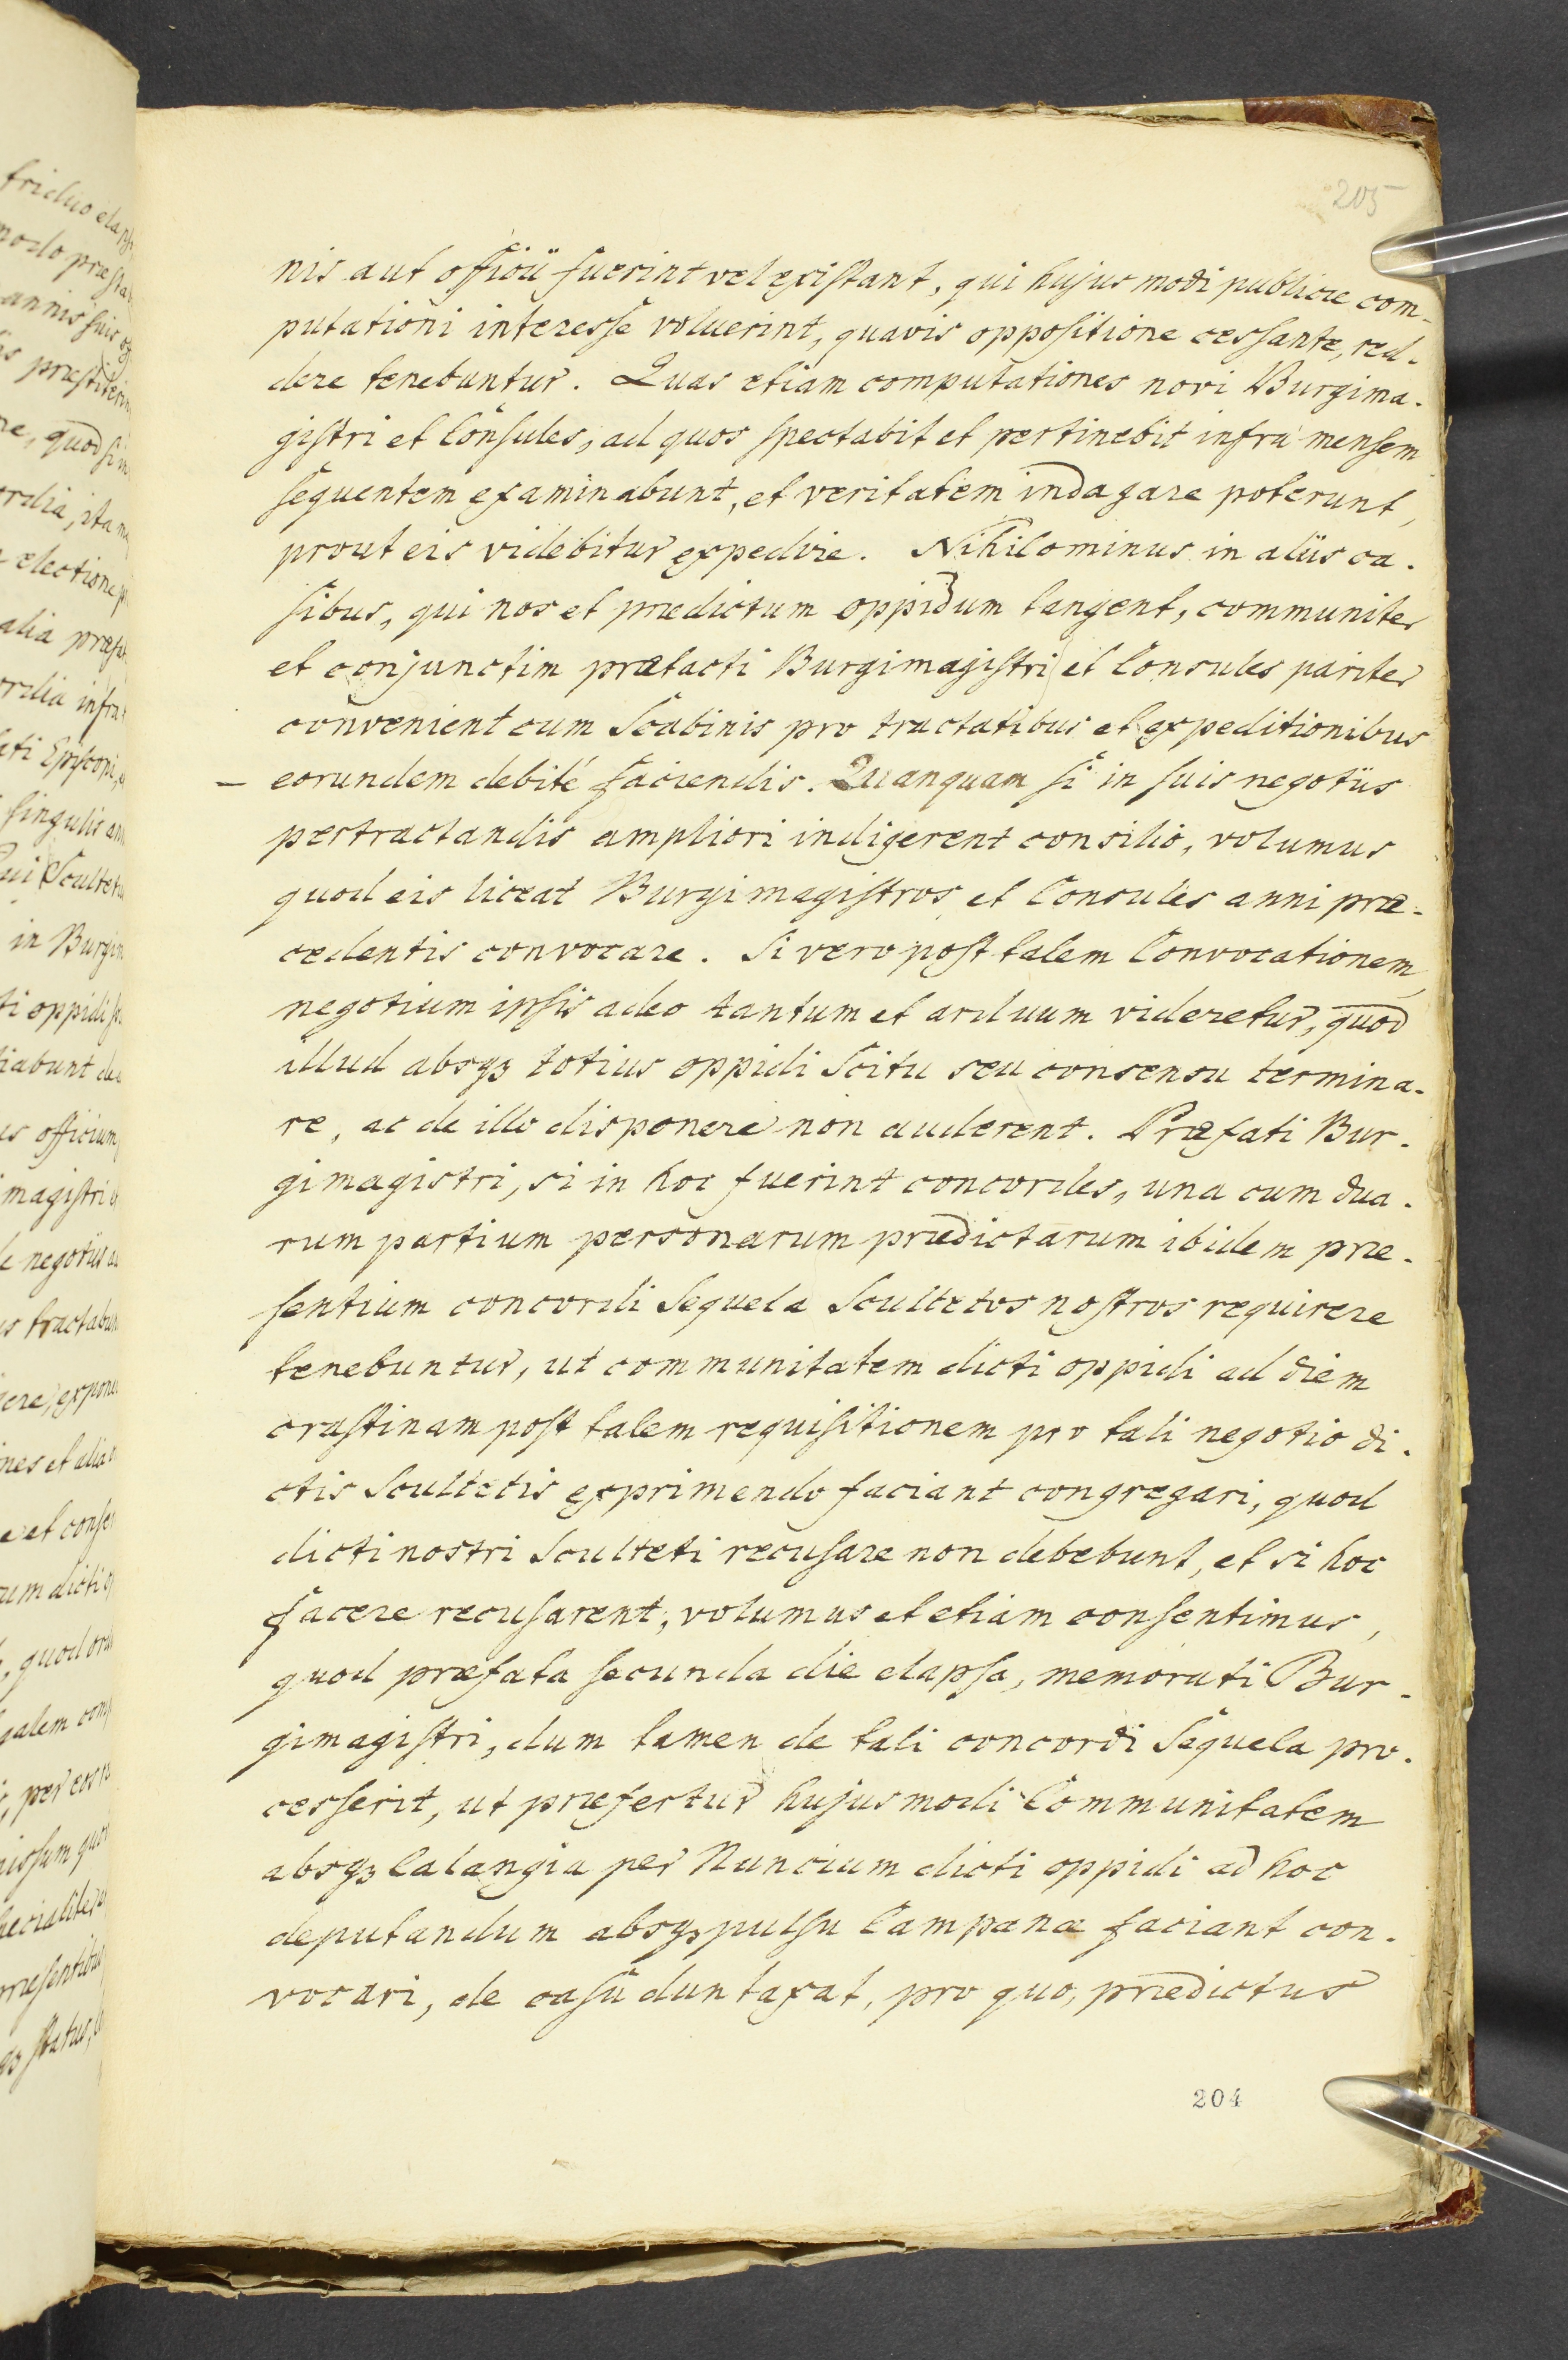 205
nis aut officii fuerint vel existant, qui hujus modi publicæ com-
putationi interesse voluerint, quavis oppositione cessante, red-
dere tenebuntur. Quas etiam computationes novi Burgima-
gistri et Consules, ad quos spectabit et pertinebit infra mensem
sequentem examinabunt, et veritatem indagare poterunt,
prout eis videbitur expedire. Nihilominus in aliis ca-
sibus, qui nos et prædictum oppidum tangent, communiter
et conjunctim prætacti Burgimagistri et Consules pariter
convenient cum Scabinis pro tractatibus et expeditionibus
- eorundem debité faciendis. Quanquam si in suis negotiis
pertractandis ampliori indigerent consilio, volumus
quod eis liceat Burgimagistros et Consules anni præ-
cedentis convocare. Si vero post talem Convocationem,
negotium ipsis adeo tantum et arduum videretur, quod
illud absqꝫ totius oppidi Scitu seu consensu termina-
re, ac de illo disponere non auderent. Præfati Bur-
gimagistri, si in hoc fuerint concordes, una cum dua-
rum partium personarum prædictarum ibidem præ-
sentium concordi Sequela Scultetos nostros requirere
tenebuntur, ut communitatem dicti oppidi ad diem
crastinam post talem requisitionem pro tali negotio di-
ctis Scultetis exprimendo faciant congregari, quod
dicti nostri Sculteti recusare non debebunt, et si hoc
facere recusarent, volumus et etiam consentimus,
quod præfata secunda die elapsa, memorati Bur-
gimagistri, dum tamen de tali concordi Sequela pro-
cesserit, ut præfertur hujusmodi Communitatem
absqꝫ Calangia per Nuncium dicti oppidi ad hoc
deputandum absqꝫ pulsu Campanæ faciant con-
vocari, de casu duntaxat, pro quo, prædictus
204